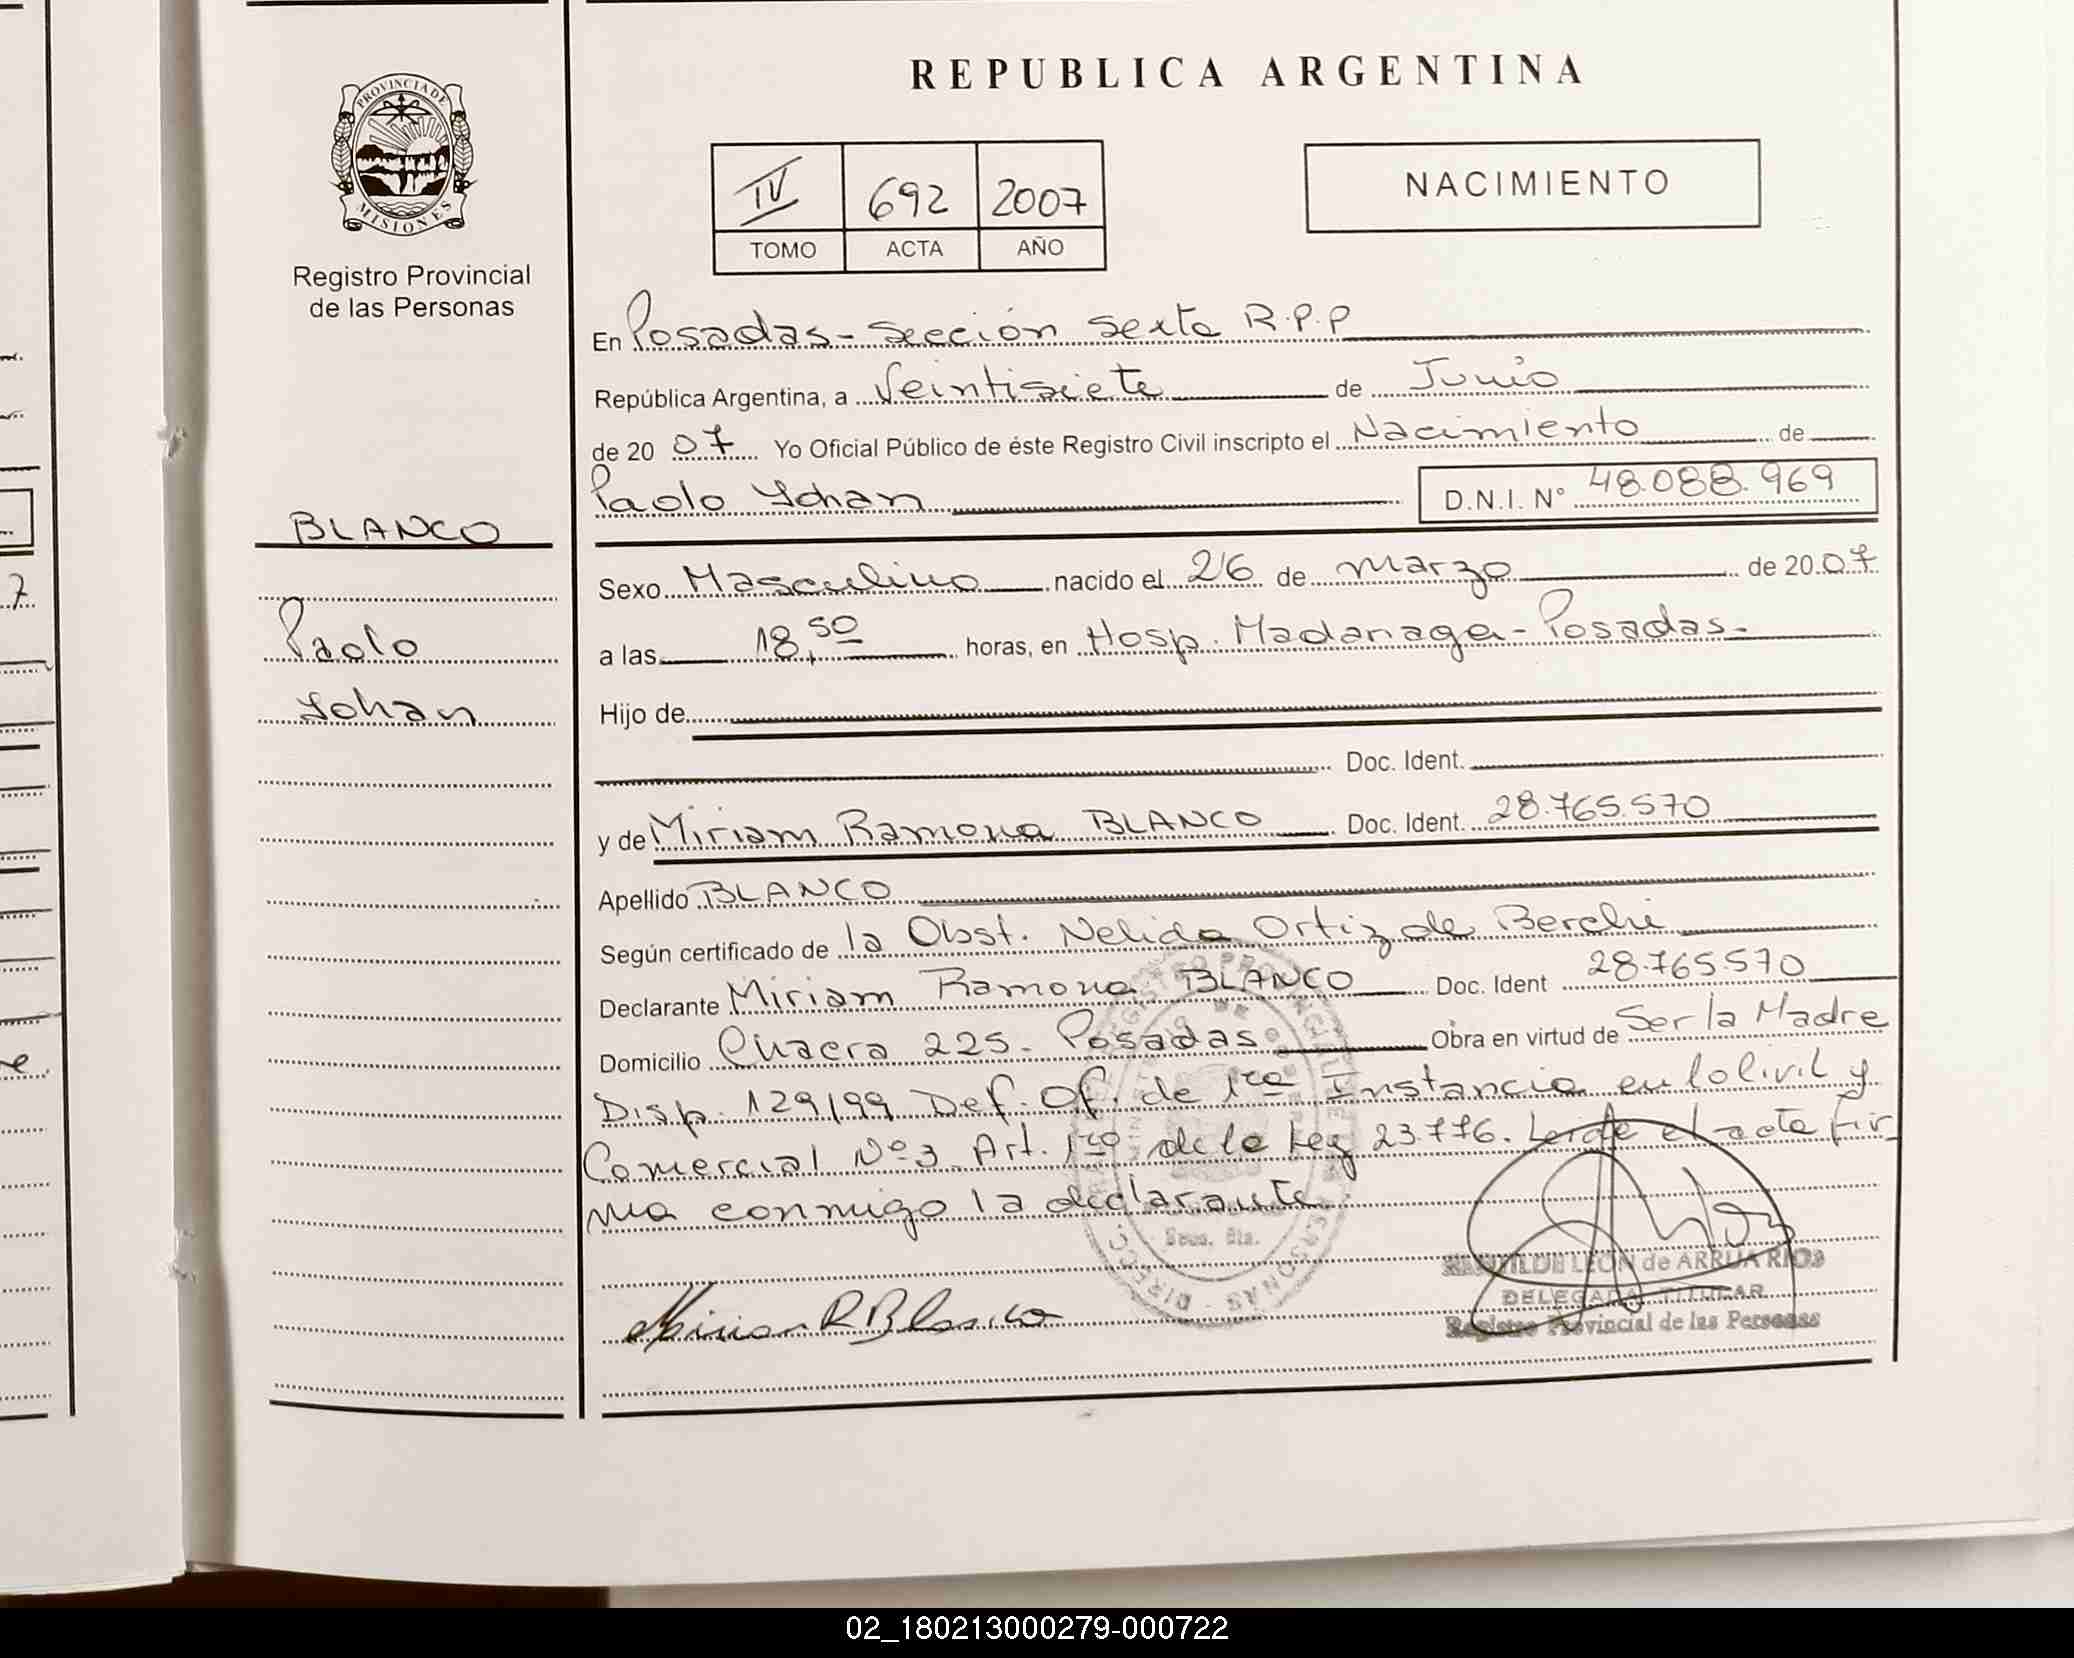 REPUBLICA ARGENTINA
PROVINCIA DE
MISIONES
Registro Provincial
de las Personas
IV 692 2007
TOMO ACTA AÑO
NACIMIENTO
En Posadas - Sección Sexta R.P.P
República Argentina, a Veintisiete de Junio
de 2007 Yo Oficial Público de éste Registro Civil inscripto el Nacimiento de
Paolo Yohan D.N.I. Nº 48.088.969
BLANCO
Paolo
Yohan
Sexo Masculino nacido el 26 de marzo de 2007
a las 18,50 horas, en Hosp. Madariaga - Posadas -
Hijo de
Doc. Ident.
y de Miriam Ramona BLANCO Doc. Ident. 28.765.570
Apellido BLANCO
Según certificado de la Obst. Nelida Ortiz de Berchi
Declarante Miriam Ramona BLANCO Doc. Ident 28.765.570
Domicilio Chacra 225 - Posadas Obra en virtud de Ser la Madre
Disp. 129/99 Def. Of. de 1ra Instancia en lo Civil y
Comercial Nº 3 Art. 1ro de la Ley 23.776. Leída el acta fir
ma conmigo la declarante
Miriam R Blanco
LEON de ARRUA RIOS
DELEGADA TITULAR
Registro Provincial de las Personas
7
02_180213000279-000722